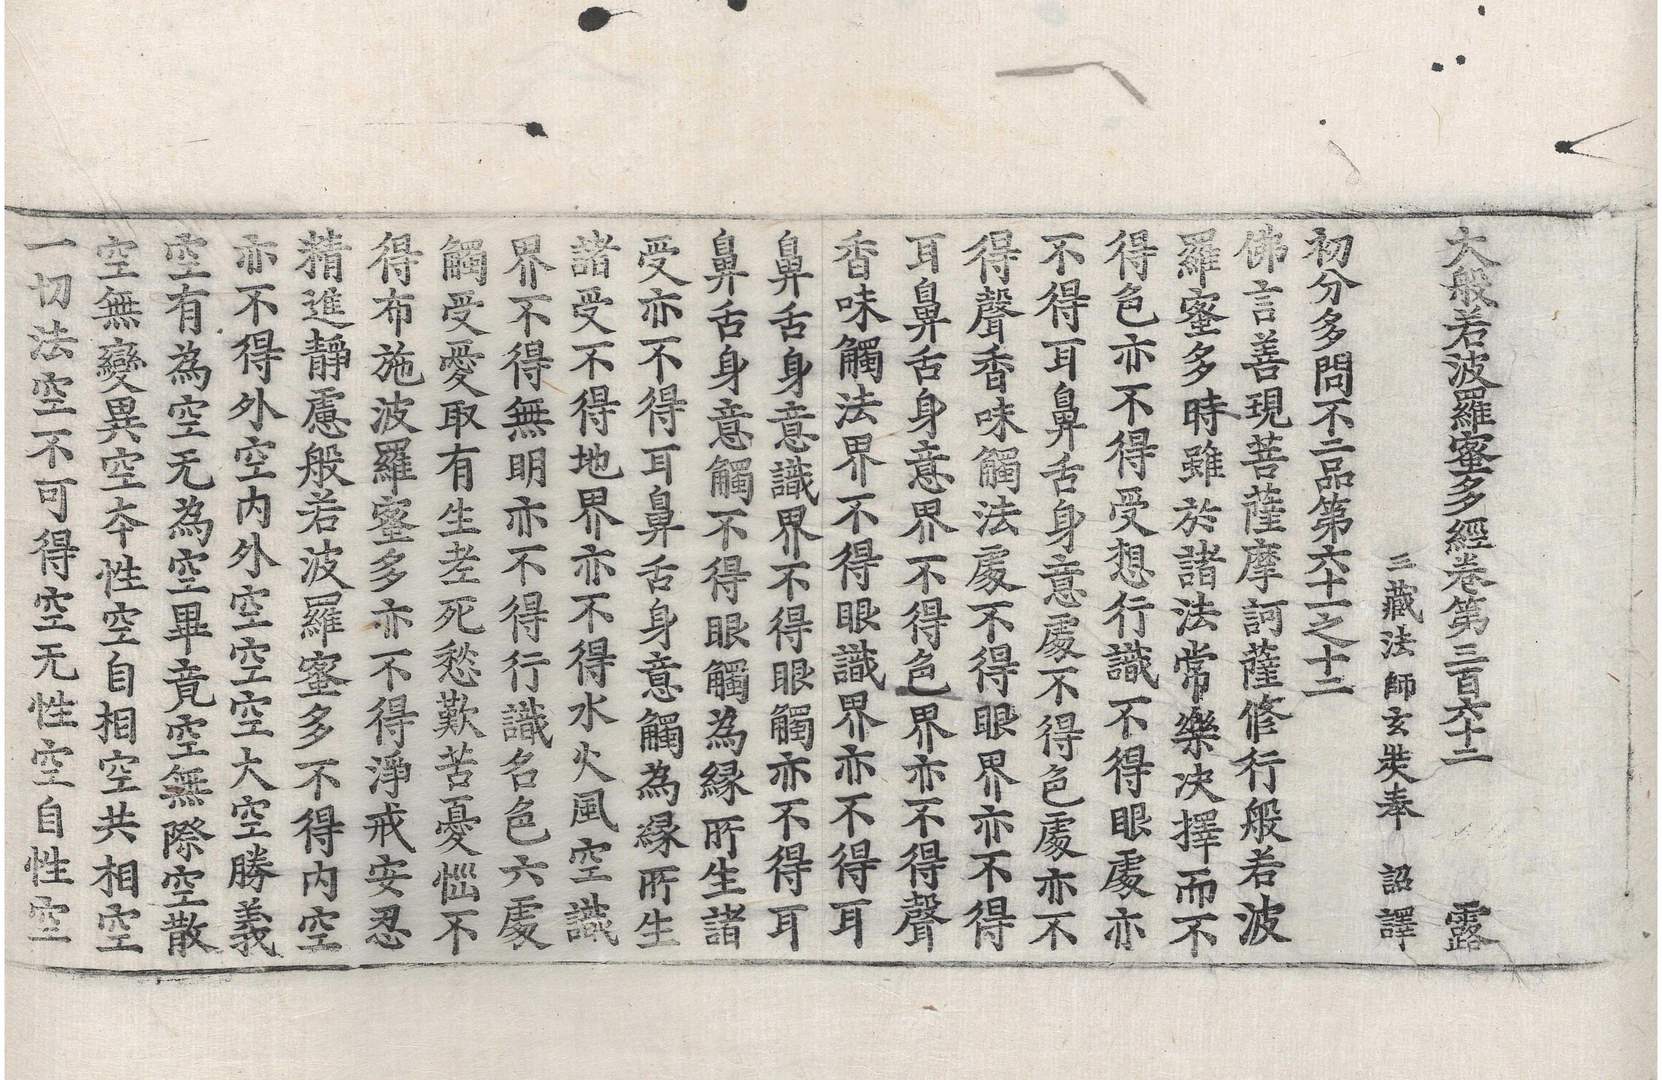 大般若波羅蜜多經卷第三百六十二 露
三藏法師玄奘奉 詔譯
初分多問不二品第六十一之十二
佛言善現菩薩摩訶薩修行般若波
羅蜜多時雖於諸法常樂决擇而不
得色亦不得受想行識不得眼處亦
不得耳鼻舌身意處不得色處亦不
得聲香味觸法處不得眼界亦不得
耳鼻舌身意界不得色界亦不得聲
香味觸法界不得眼識界亦不得耳
鼻舌身意識界不得眼觸亦不得耳
鼻舌身意觸不得眼觸為縁所生諸
受亦不得耳鼻舌身意觸為縁所生
諸受不得地界亦不得水火風空識
界不得無明亦不得行識名色六處
觸受愛取有生老死愁歎苦憂惱不
得布施波羅蜜多亦不得淨戒安忍
精進靜慮般若波羅蜜多不得内空
亦不得外空内外空空空大空勝義
空有為空无為空畢竟空無際空散
空無變異空本性空自相空共相空
一切法空不可得空无性空自性空